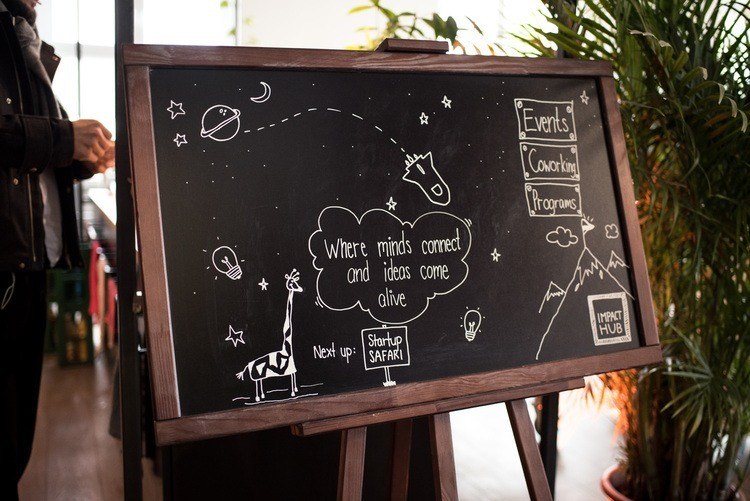 Events
Coworking
Programs
Where minds connect
and ideas come
alive
Next up:
Startup
SAFARI
IMPACT
HUB